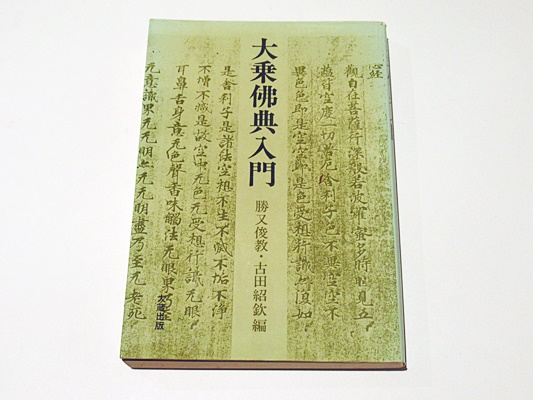 大乗佛典入門
勝又俊教・古田紹欽編
大蔵出版
心経
觀自在菩薩行深般若波羅蜜多時照見五
蘊皆空度一切苦厄舍利子色不異空空不
異色色即是空空即是色受想行識亦復如
是舍利子是諸法空想不生不滅不垢不淨
不增不減是故空中无色无受想行識无眼
耳鼻舌身意无色聲香味觸法无眼界乃至
无意識界无无明亦无无明盡乃至无老死